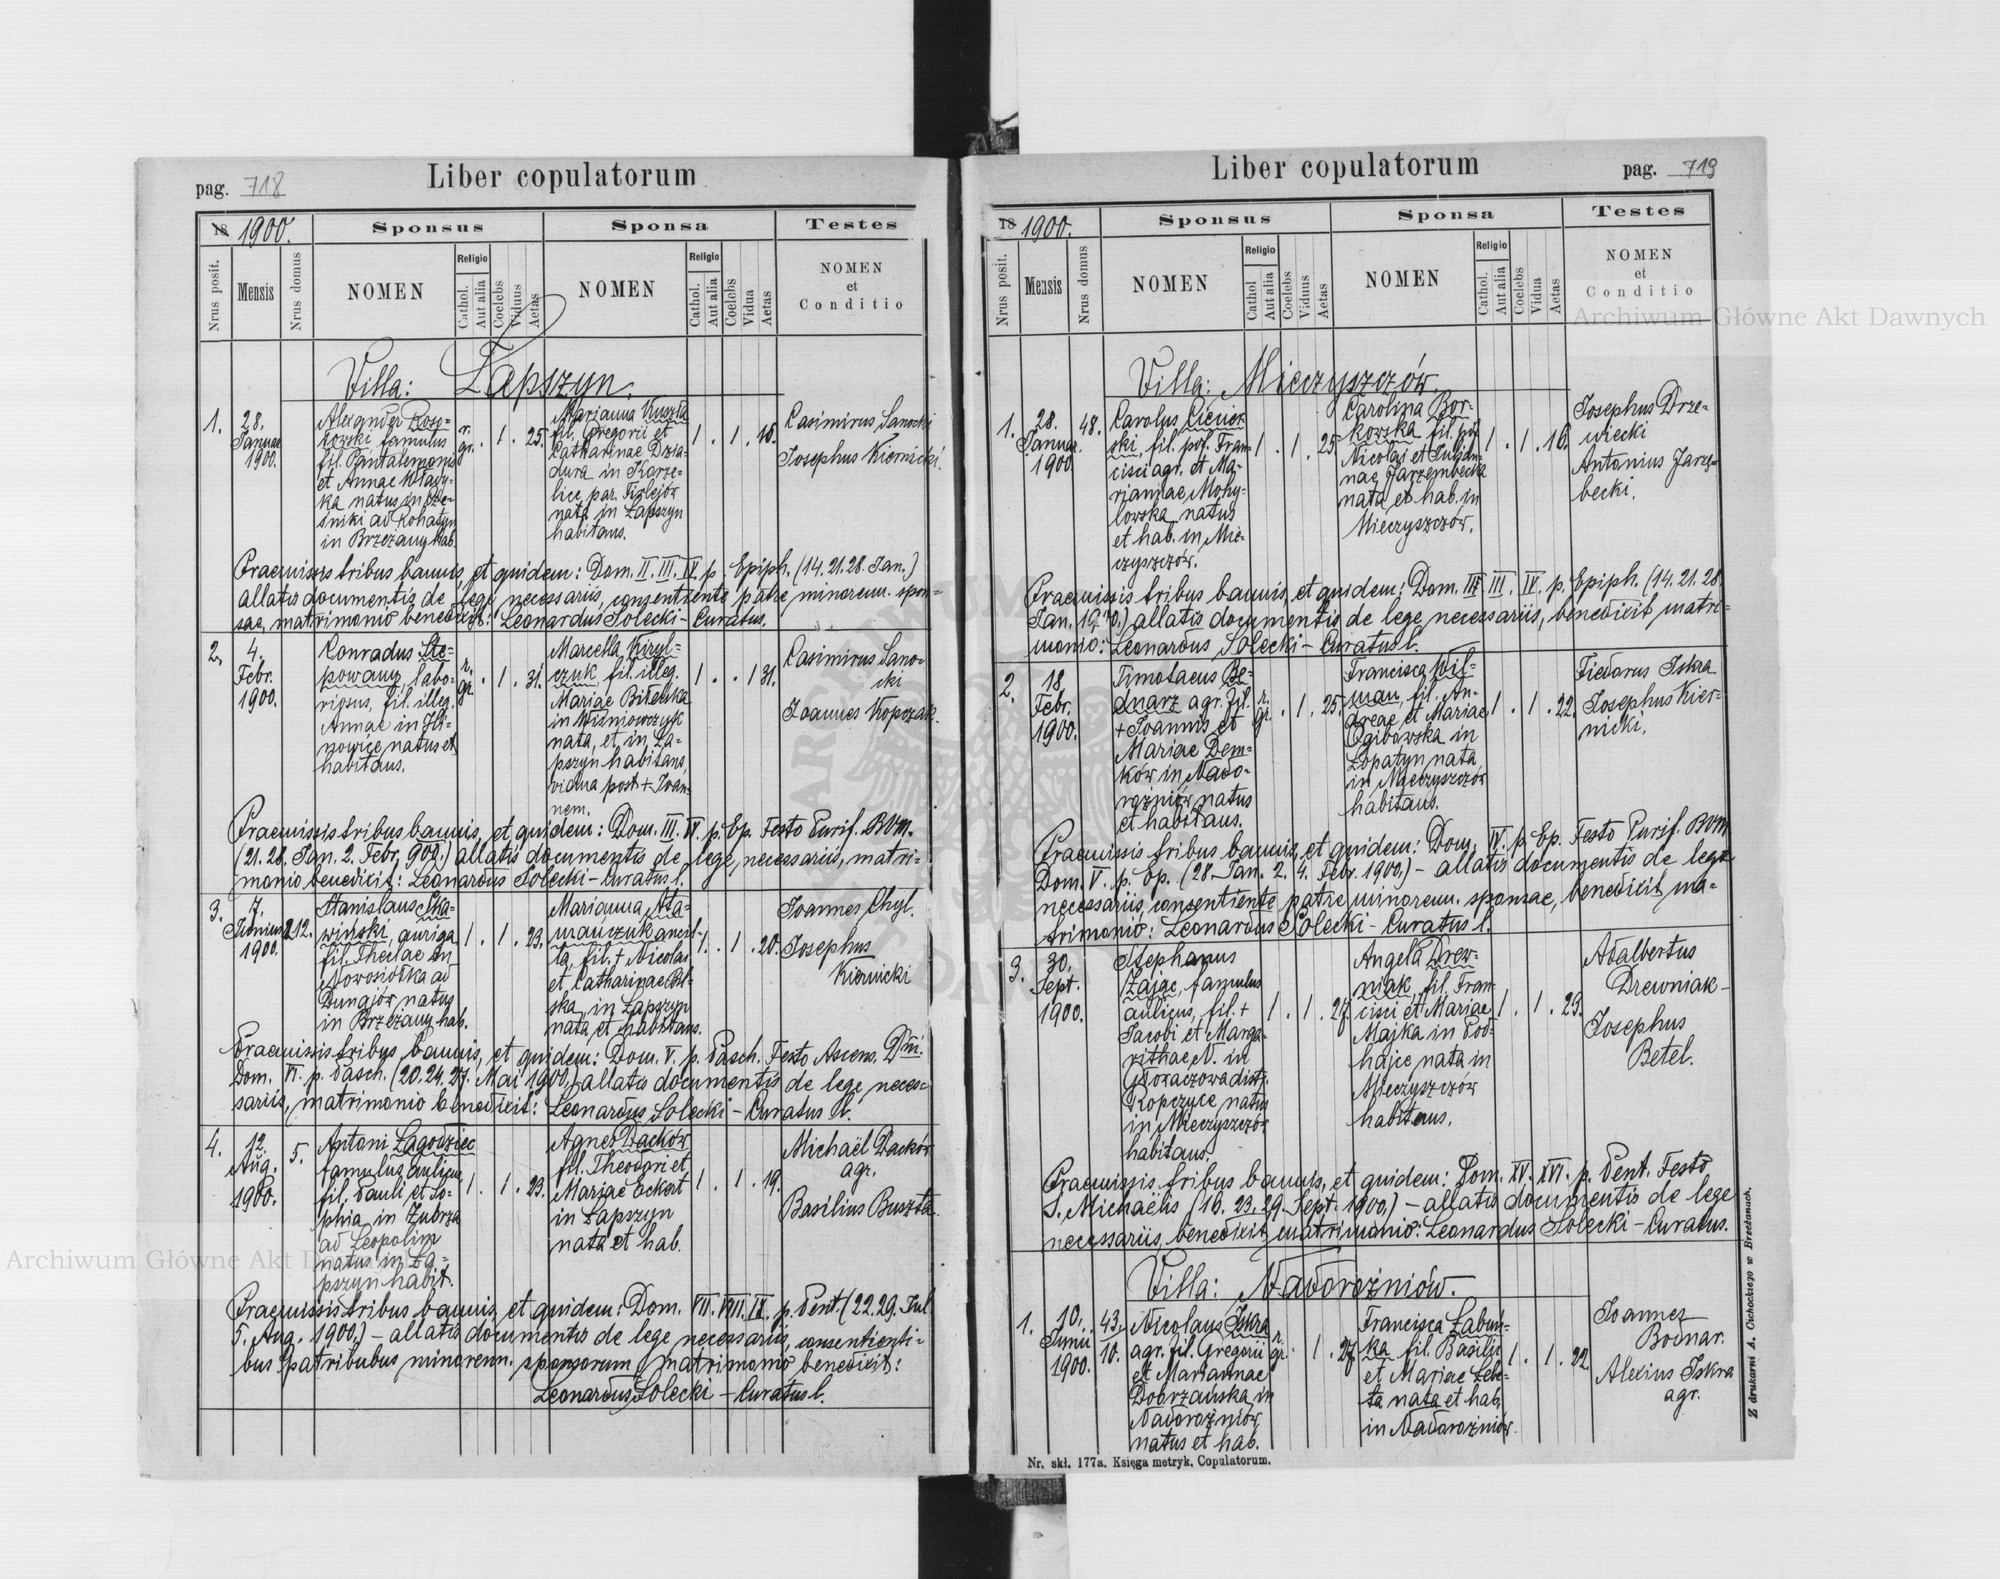 pag. 718
Liber copulatorum
18 1900.
Sponsus
Sponsa
Testes
Nrus posit.
Mensis
Nrus domus
NOMEN
Religio
Cathol.
Aut alia
Coelebs
Viduus
Aetas
NOMEN
Religio
Cathol.
Aut alia
Coelebs
Vidua
Aetas
NOMEN
et
Conditio
Villa: Łapszyn.
1.
28.
Januar
1900.
Alexander
famulus
fil. Pantalemonis
et Annae
ka natus in
ad Rohatyn
in Brzeżany hab.
r.
gr. . 1 . 25.
Marianna
fil. Gregorii et
Catharinae Dzia-
dura in Korze-
lice, par. Firlejów
nata in Łapszyn
habitans.
1 . 1 . 16.
Casimirus Sanocki
Josephus Kiernicki.
Praemissis tribus bannis, et quidem: Dom. II. III. IV. p. Epiph. (14. 21. 28. Jan.)
allatis documentis de lege necessariis, consentiente patre minorenn. spon-
sae, matrimonio benedixit: Leonardus Solecki - Curatus.
2.
4.
Febr.
1900.
Conradus Ste-
powany, labo-
riosus, fil. illeg.
Annae in Hi-
nowice natus et
habitans.
r.
gr. . 1 . 31.
Marcella Kiryl-
czuk, fil. illeg.
Mariae Bileńka
in Wiśniowczyk
nata, et in Ła-
pszyn habitans,
vidua post + Joan-
nem.
1 . . 1 31.
Casimirus Sano-
cki
Joannes Kopczak.
Praemissis tribus bannis, et quidem: Dom. III. IV. p. Ep. Festo Purif. BVM.
(21. 28. Jan. 2. Febr. 900.) allatis documentis de lege, necessariis, matri-
monio benedixit: Leonardus Solecki - Curatus l.
3.
7.
Junius
1900.
212.
Stanislaus Ska-
wiński, auriga
fil. Theclae in
Nowosiółka ad
Dunajów natus
in Brzeżany hab.
1 . 1 . 23.
Marianna Ada-
mańczuk
fil. + Nicolai
et Catharinae
ska, in Łapszyn
nata et habitans.
1 . 1 . 20.
Joannes Chyl.
Josephus
Kiernicki
Praemissis tribus bannis, et quidem: Dom. V. p. Pasch. Festo Ascens. Dni.
Dom. VI. p. Pasch. (20. 24. 27. Mai 1900.) allatis documentis de lege neces-
sariis, matrimonio benedixit: Leonardus Solecki - Curatus l.
4.
12.
Aug.
1900.
5.
Antoni Łagodziec
famulus aulicus
fil. Pauli et So-
phia in Zubrza
ad Leopolim
natus in Ła-
pszyn habit.
1 . 1 . 23.
Agnes Daćków
fil. Theodori et
Mariae Eckert
in Łapszyn
nata et hab.
1 . 1 . 19.
Michaël Daćków
agr.
Basilius Buszta.
Praemissis tribus bannis, et quidem: Dom. VII. VIII. IX. p. Pent. (22. 29. Jul.
5. Aug. 1900.) - allatis documentis de lege necessariis, consentienti-
bus patribus minorenn. sponsorum matrimonio benedixit:
Leonardus Solecki - Curatus l.
Liber copulatorum
pag. 719
18 1900.
Sponsus
Sponsa
Testes
Nrus posit.
Mensis
Nrus domus
NOMEN
Religio
Cathol.
Aut alia
Coelebs
Viduus
Aetas
NOMEN
Religio
Cathol.
Aut alia
Coelebs
Vidua
Aetas
NOMEN
et
Conditio
Villa: Mieczyszczów.
1.
28.
Januar
1900.
48.
Carolus
ski, fil. Fran-
cisci agr. et Ma-
riannae Mohy-
lowska natus
et hab. in Mie-
czyszczów.
1 . 1 . 25.
Carolina Bor-
kowska fil.
Nicolai et Julian-
nae Jarzembecka
nata et hab. in
Mieczyszczów.
1 . 1 . 16.
Josephus Drze-
wiecki
Antonius Jarzę-
becki.
Praemissis tribus bannis, et quidem: Dom. II. III. IV. p. Epiph. (14. 21. 28.
Jan. 1900.) allatis documentis de lege necessariis, benedixit matri-
monio: Leonardus Solecki - Curatus l.
2.
18.
Febr.
1900.
Timotaeus Be-
dnarz agr. fil.
+ Joannis et
Mariae Dem-
ków in Nado-
rożniów natus
et habitans.
r.
gr. . 1 . 25.
Francisca Wil-
man, fil. An-
dreae et Mariae
Ogibowska in
Łopatyn nata,
in Mieczyszczów
habitans.
1 . 1 . 22.
Fiedorus Iskra
Josephus Kier-
nicki.
Praemissis tribus bannis, et quidem: Dom. IV. p. Ep. Festo Purif. BVM
Dom. V. p. Ep. (28. Jan. 2. 4. Febr. 1900.) - allatis documentis de lege
necessariis, consentiente patre minorenn. sponsae, benedixit ma-
trimonio: Leonardus Solecki - Curatus l.
3.
30.
Sept.
1900.
Stephanus
Zając, famulus
aulicus, fil. +
Jacobi et Marga-
rithae N. in
distr.
Ropczyce natus
in Mieczyszczów
habitans.
1 . 1 . 27.
Angela Drew-
niak, fil. Fran-
cisci et Mariae
Majka in Pod-
hajce nata in
Mieczyszczów
habitans.
1 . 1 . 23.
Adalbertus
Drewniak -
Josephus
Betel.
Praemissis tribus bannis, et quidem: Dom. XV. XVI. p. Pent. Festo
S. Michaëlis (16. 23. 29. Sept. 1900.) - allatis documentis de lege
necessariis, benedixit matrimonio: Leonardus Solecki - Curatus.
Villa: Nadorożniów.
1.
10.
Junii
1900.
43.
10.
Nicolaus Iskra
agr. fil. Gregorii
et Mariannae
Dobrzańska in
Nadorożniów
natus et hab.
r.
gr. . 1 . 27.
Francisca Łabuń-
ka fil. Basilii
et Mariae Łebe-
ta nata et hab.
in Nadorożniów.
1 . 1 . 22.
Joannes
Bodnar.
Alexius Iskra
agr.
Nr. skł. 177a. Księga metryk. Copulatorum.
Z drukarni A. Cichockiego w Brzeżanach.
Archiwum Główne Akt Dawnych
Archiwum Główne Akt Dawnych